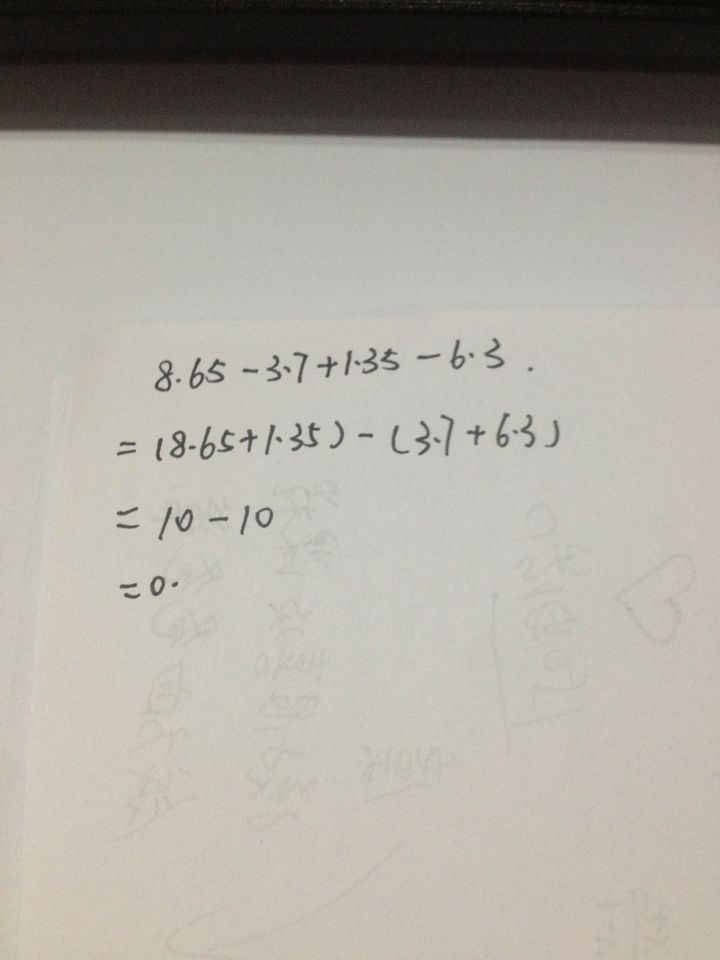 8.65-3.7+1.35-6.3.
=(8.65+1.35)-(3.7+6.3)
=10-10
=0.